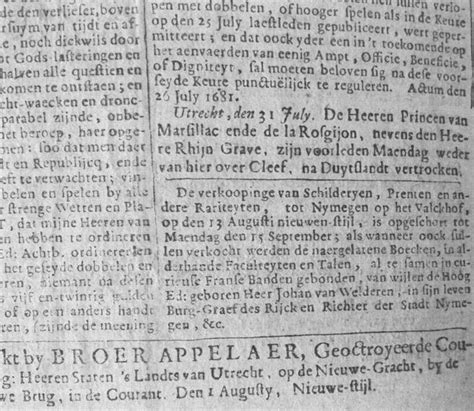 de den verlieser, boven
rsuym van tijdt en af-
e, noch dickwils door
ot Gods lasteringen en
halven alle questien en
komen te ontstaen; en
cht-waecken en dronc-
parabel zijnde, onbe-
net beroep, haer opge-
men: soo dat men daer
t en Republijcq, ende
eft te verwachten; vin-
belen en spelen by alle
er strenge Wetten en Pla-
T, dat mijne Heeren van
en hebben te ordineren
Ed: Achtb. ordineren
het geseyde dobbelen en
den, niemant na desen
s vijf en-twintig gulden
of op een anders handt
(zijnde de meening
pen met dobbelen, of hooger spelen als in de Keure
op den 25 July laestleden gepubliceert, wert geper-
mitteert; en dat oock yder een in't toekomende op
het aenvaerden van eenig Ampt, Officie, Beneficie,
of Digniteyt, sal moeten beloven sig na dese voor-
seyde Keure punctuelijck te reguleren. Actum den
26 July 1681.
Utrecht, den 31 July. De Heeren Princen van
Marsillac ende de la Rosgijon, nevens den Hee-
re Rhijn Grave, zijn voorleden Maendag weder
van hier over Cleef, na Duytslandt vertrocken.
De verkoopinge van Schilderyen, Prenten en an-
dere Rariteyten, tot Nymegen op het Valckhof,
op den 13 Augusti nieuwen-stijl, is opgeschort tot
Maendag den 15 September; als wanneer oock sul-
len verkocht werden de naergelatene Boecken, in al-
derhande Faculteyten en Talen, al te samen in cu-
rieuse Franse Banden gebonden, van wijlen de Hoog
Ed: geboren Heer Johan van Welderen, in sijn leven
Burg-Graef des Rijcks en Richter der Stadt Nyme-
gen, &c.
kt by BROER APPELAER, Geoctroyeerde Cou-
g: Heeren Staten 's Landts van Utrecht, op de Nieuwe-Gracht, by de
we Brug, in de Courant. Den 1 Augusty, Nieuwe-stijl.